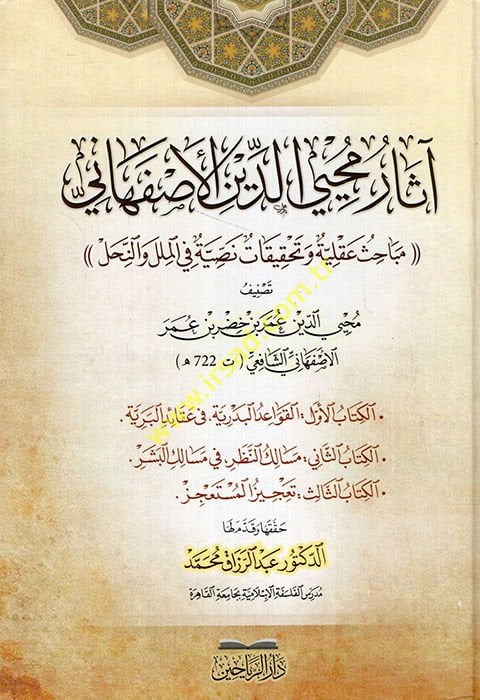 آثَارُ مُحْيِي الدِّينِ الأَصْفَهَانِيِّ
(( مَبَاحِثُ عَقْلِيَّةٌ وَتَحْقِيقَاتٌ نَصِّيَّةٌ فِي الْمِلَلِ وَالنِّحَلِ ))
تَصْنِيفُ
مُحْيِي الدِّينِ عُمَرَ بْنِ خَضِرِ بْنِ عُمَرَ
الأَصْفَهَانِيِّ الشَّافِعِيِّ (ت 722 هـ)
• الكِتَابُ الأَوَّلُ: القَوَاعِدُ البَدْرِيَّة. فِي عَقَائِدِ البَرِيَّة.
• الكِتَابُ الثَّانِي: مَسَالِكُ النَّظَرِ، فِي مَسَالِكِ البَشَر.
• الكِتَابُ الثَّالِث: تَعْجِيزُ المُسْتَعْجِزِ.
حَقَّقَهَا وَقَدَّمَ لَهَا
الدُّكْتُور عَبْدُ الرَّزَّاقِ مُحَمَّد
مُدَرِّسُ الفَلْسَفَةِ الإِسْلَامِيَّةِ بِجَامِعَةِ القَاهِرَةِ
دَارُ الرَّيَاحِين
www.irsad.com.tr